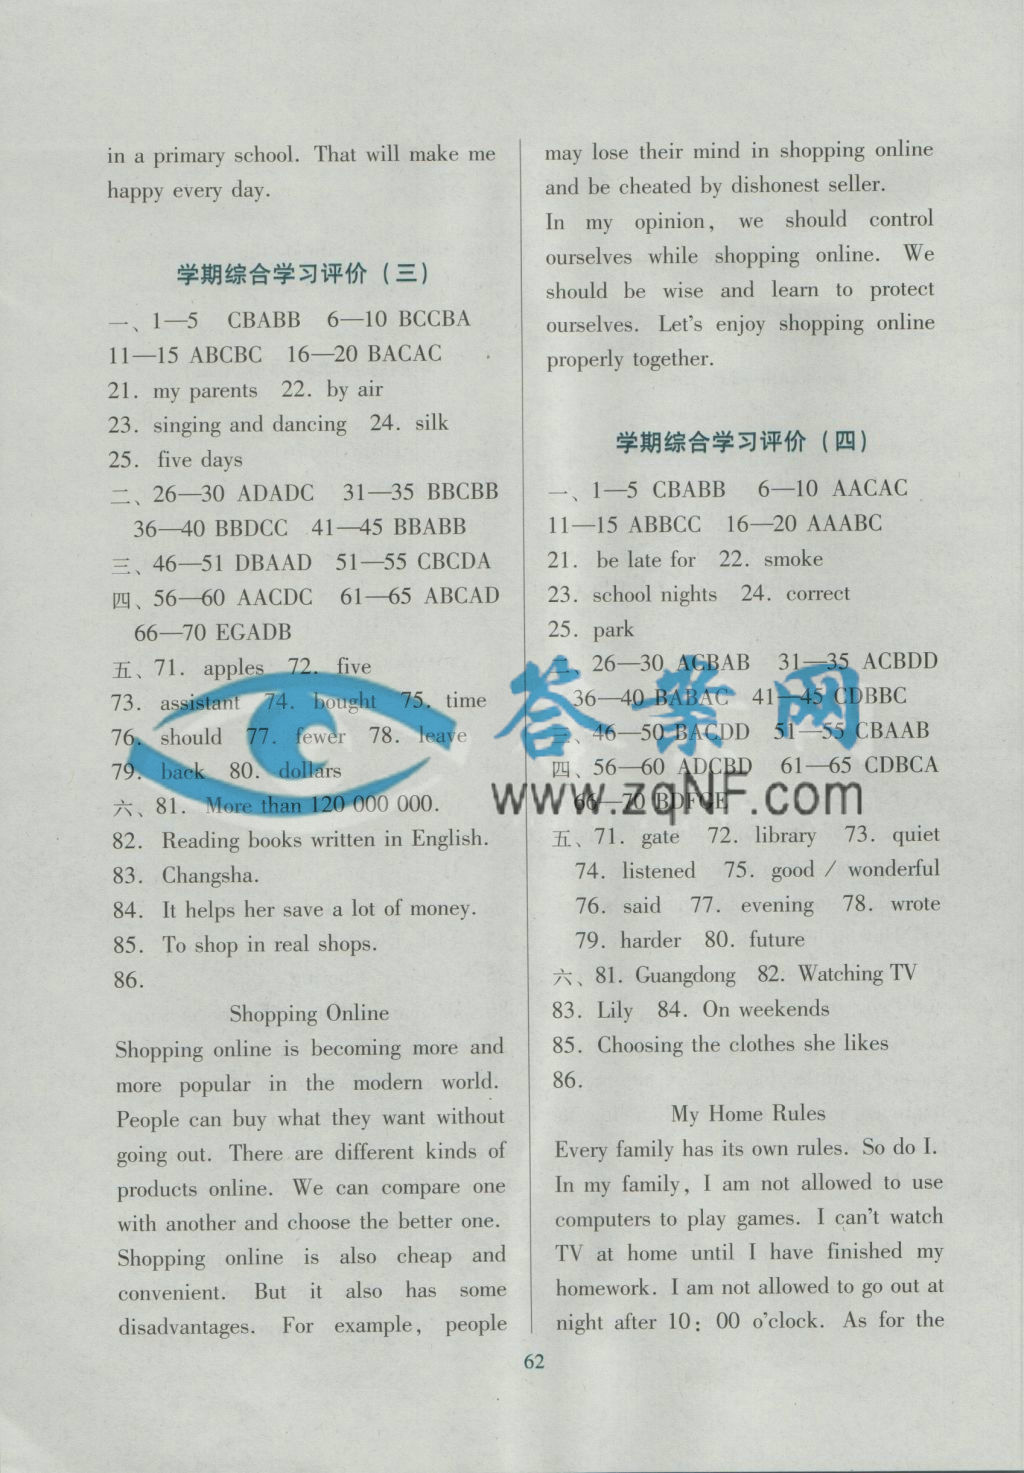 in a primary school. That will make me
happy every day.
学期综合学习评价(三)
一、1—5 CBABB 6—10 BCCBA
11—15 ABCBC 16—20 BACAC
21. my parents 22. by air
23. singing and dancing 24. silk
25. five days
二、26—30 ADADC 31—35 BBCBB
36—40 BBDCC 41—45 BBABB
三、46—51 DBAAD 51—55 CBCDA
四、56—60 AACDC 61—65 ABCAD
66—70 EGADB
五、71. apples 72. five
73. assistant 74. bought 75. time
76. should 77. fewer 78. leave
79. back 80. dollars
六、81. More than 120 000 000.
82. Reading books written in English.
83. Changsha.
84. It helps her save a lot of money.
85. To shop in real shops.
86.
Shopping Online
Shopping online is becoming more and
more popular in the modern world.
People can buy what they want without
going out. There are different kinds of
products online. We can compare one
with another and choose the better one.
Shopping online is also cheap and
convenient. But it also has some
disadvantages. For example, people
may lose their mind in shopping online
and be cheated by dishonest seller.
In my opinion, we should control
ourselves while shopping online. We
should be wise and learn to protect
ourselves. Let's enjoy shopping online
properly together.
学期综合学习评价(四)
一、1—5 CBABB 6—10 AACAC
11—15 ABBCC 16—20 AAABC
21. be late for 22. smoke
23. school nights 24. correct
25. park
二、26—30 ACBAB 31—35 ACBDD
36—40 BABAC 41—45 CDBBC
三、46—50 BACDD 51—55 CBAAB
四、56—60 ADCBD 61—65 CDBCA
66—70 BDFGE
五、71. gate 72. library 73. quiet
74. listened 75. good / wonderful
76. said 77. evening 78. wrote
79. harder 80. future
六、81. Guangdong 82. Watching TV
83. Lily 84. On weekends
85. Choosing the clothes she likes
86.
My Home Rules
Every family has its own rules. So do I.
In my family, I am not allowed to use
computers to play games. I can't watch
TV at home until I have finished my
homework. I am not allowed to go out at
night after 10: 00 o'clock. As for the
62
答案网
www.zqNF.com